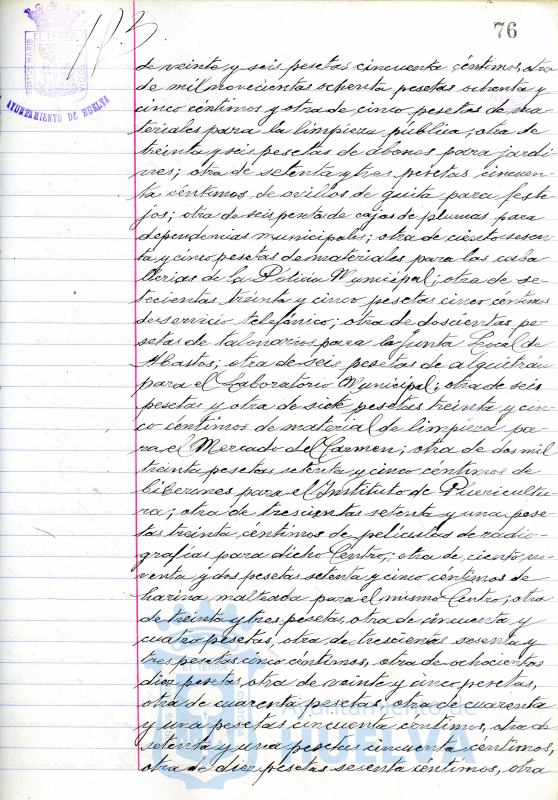 76
AYUNTAMIENTO DE HUELVA
de veinte y seis pesetas cincuenta céntimos, otra
de mil novecientas ochenta pesetas ochenta y
cinco céntimos y otra de cinco pesetas de ma-
teriales para la limpieza pública; otra de
treinta y seis pesetas de abonos para jardi-
nes; otra de setenta y tres pesetas cincuen-
ta céntimos de ovillos de guita para feste
jos; otra de seis pesetas de cajas de plumas para
dependencias municipales; otra de ciento sesen
ta y cinco pesetas de materiales para las caba
llerías de la Policía Municipal; otra de se-
tecientas treinta y cinco pesetas cinco céntimos
de servicio telefónico; otra de doscientas pe-
setas de talonarios para la Junta Local de
Abastos; otra de seis pesetas de alquitrán
para el Laboratorio Municipal; otra de seis
pesetas y otra de siete pesetas treinta y cin-
co céntimos de material de limpieza pa-
ra el Mercado del Carmen; otra de dos mil
treinta pesetas setenta y cinco céntimos de
biberones para el Instituto de Puericultu
ra; otra de trescientas setenta y una pese-
tas treinta céntimos de películas de radio-
grafías para dicho Centro; otra de ciento no-
venta y dos pesetas setenta y cinco céntimos de
harina malteada para el mismo Centro; otra
de treinta y tres pesetas, otra de cincuenta y
cuatro pesetas, otra de trescientas sesenta y
tres pesetas cinco céntimos, otra de ochocientas
diez pesetas, otra de veinte y cinco pesetas,
otra de cuarenta pesetas, otra de cuarenta
y una pesetas cincuenta céntimos, otra de
setenta y una pesetas cincuenta céntimos,
otra de diez pesetas sesenta céntimos, otra
Ayuntamiento de
HUELVA